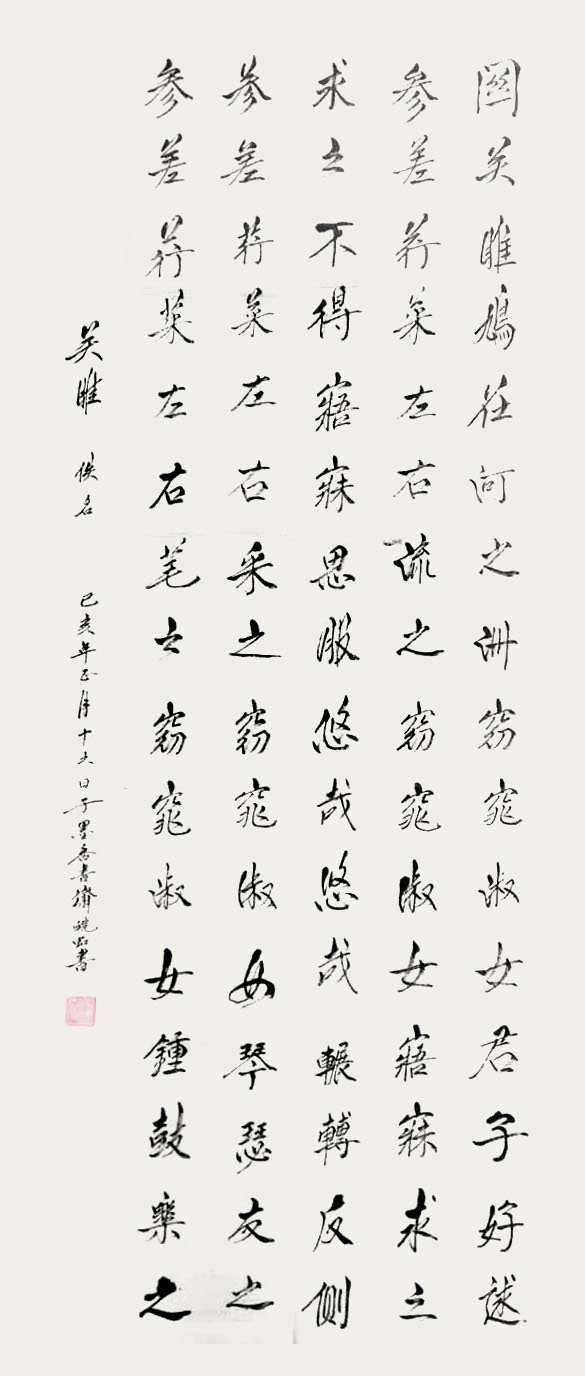 關关雎鳩在河之洲窈窕淑女君子好逑
參差荇菜左右流之窈窕淑女寤寐求之
求之不得寤寐思服悠哉悠哉輾轉反側
參差荇菜左右采之窈窕淑女琴瑟友之
參差荇菜左右芼之窈窕淑女鍾鼓樂之
关雎 佚名 己亥年正月十六日于墨香書齋書